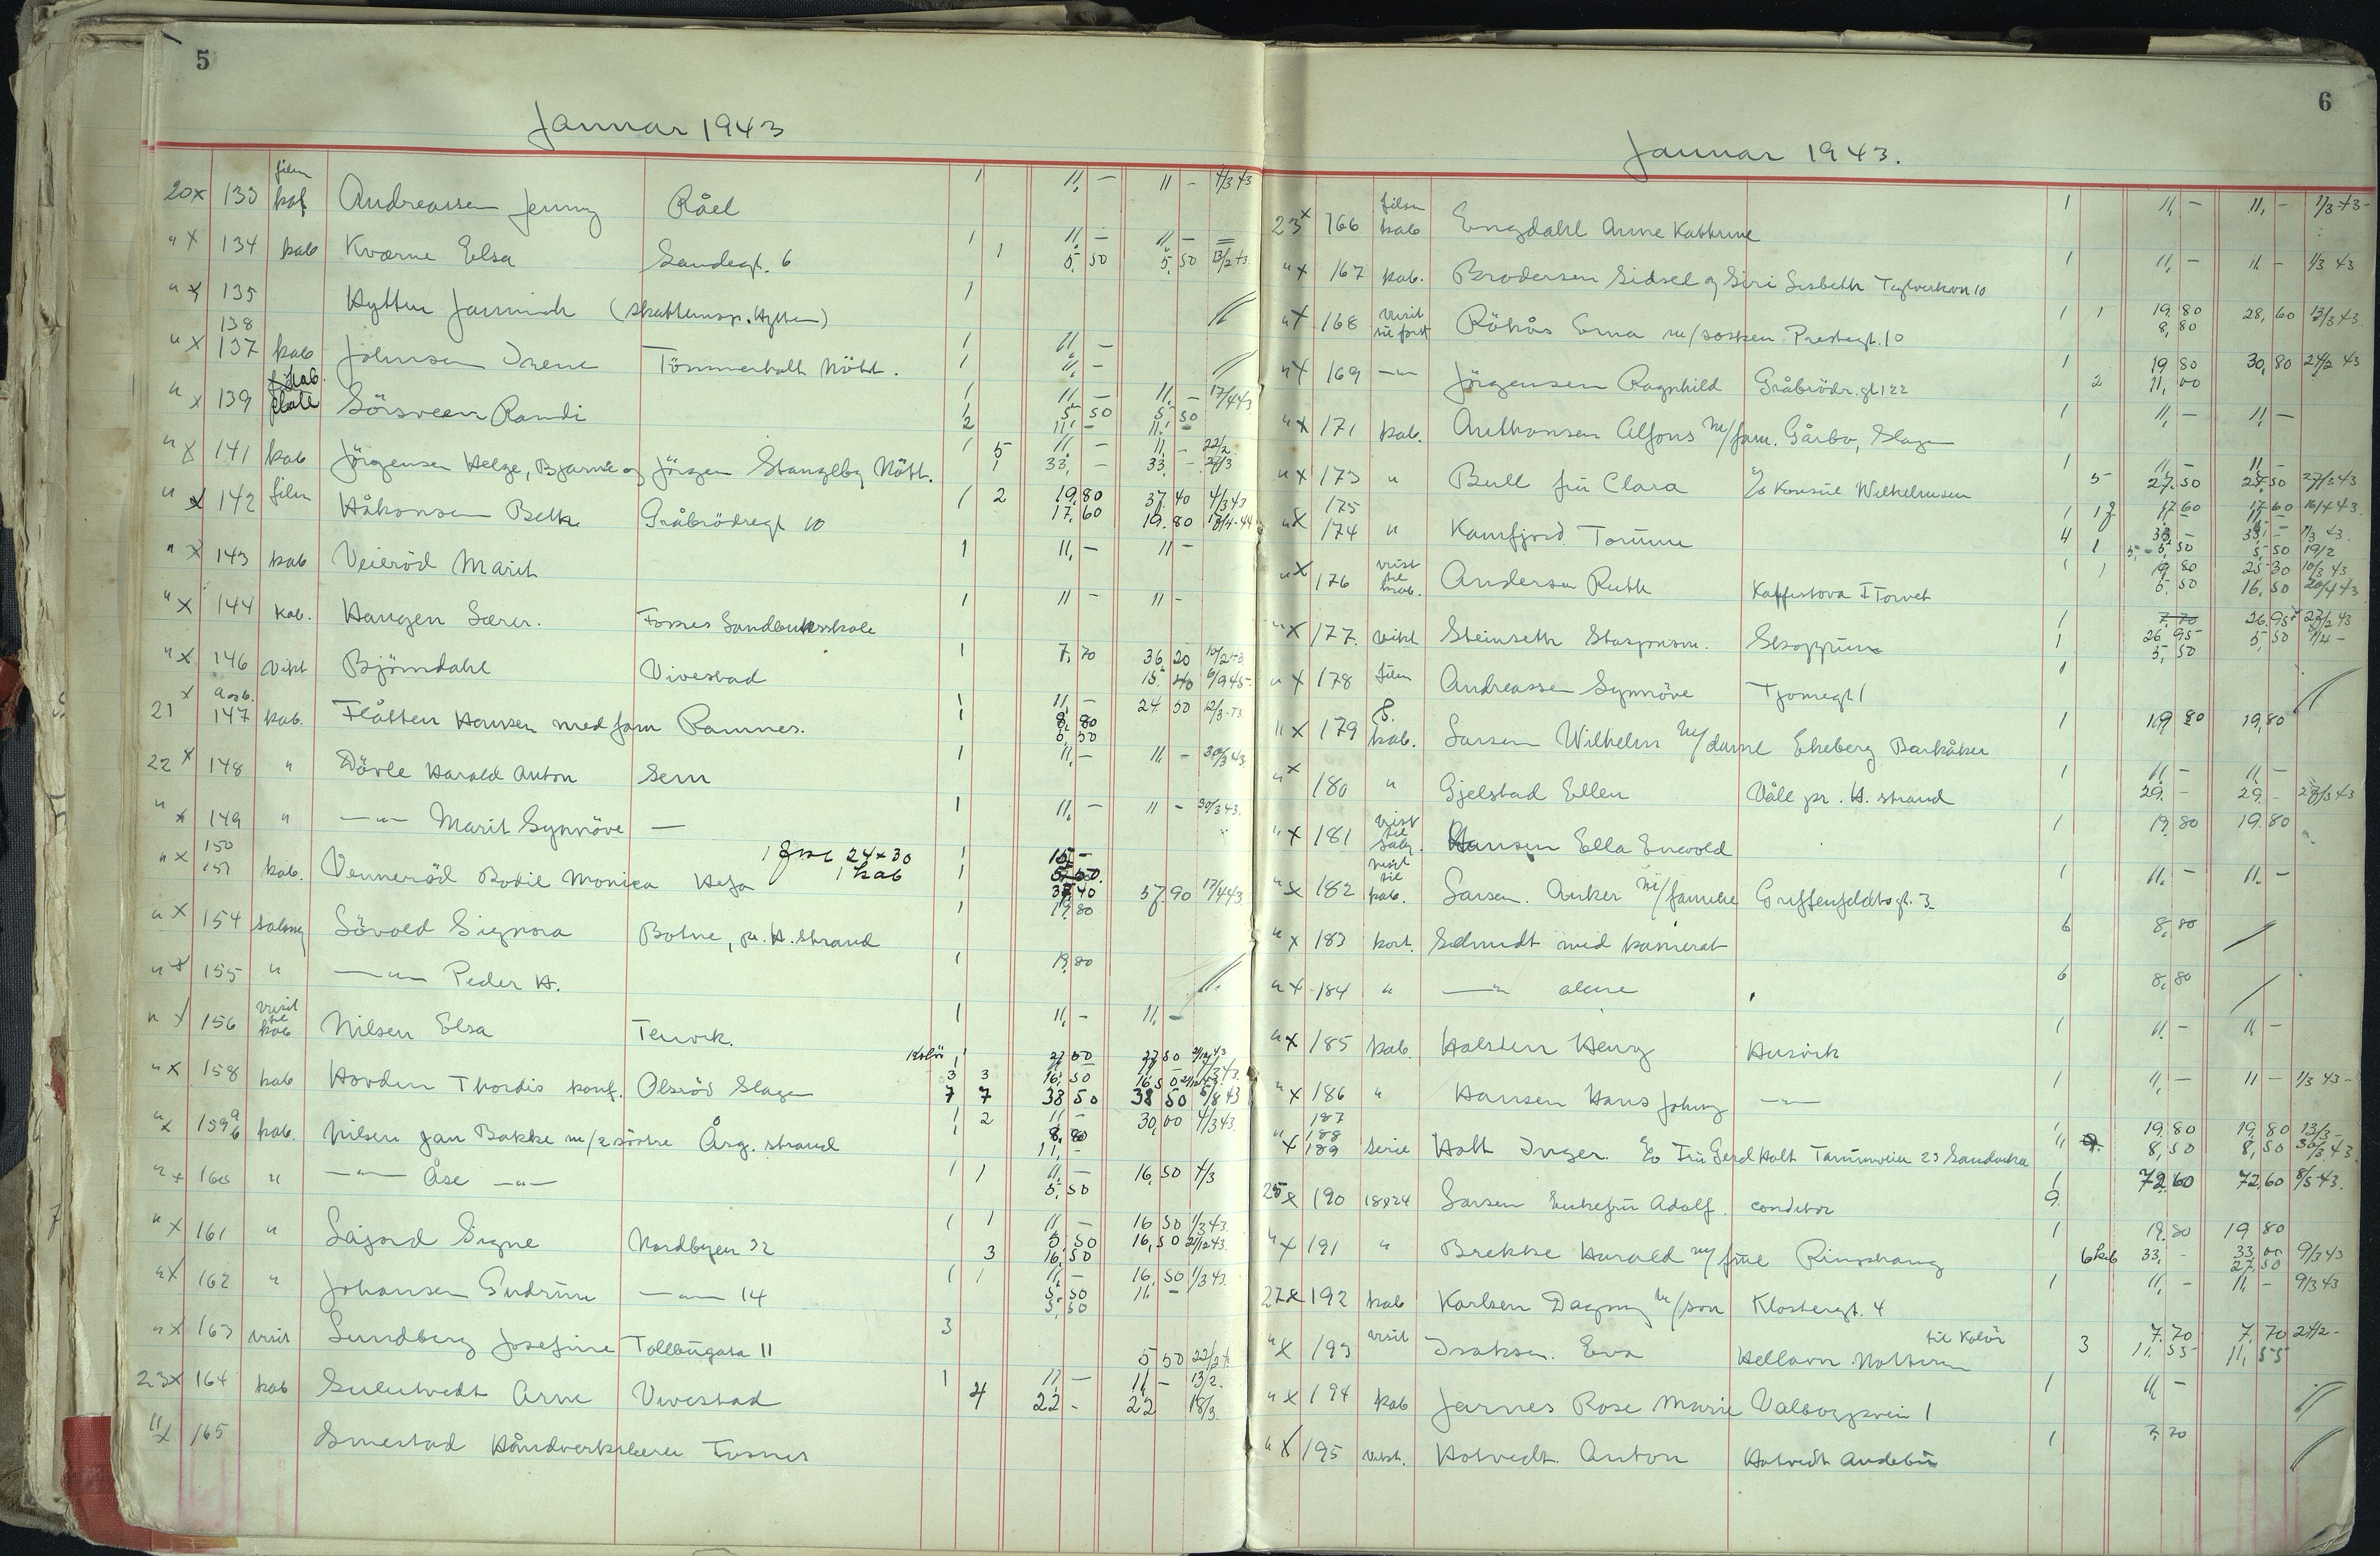 5
Januar 1943
20x 133 film kab Andreassen Jenny Råel 1 11,- 11- 4/3 43
" x 134 kab Kværne Elsa Sandegt. 6 1 1 11,- 11,-
5,50 5,50 13/2 43
" x 135 Hytten Jannich (skatteinsp. Hytten) 1
138
" x 137 kab Johnsen Irene Tömmerholt Nött. 1 11,-
1 11,-
" x 139 kab Sörsveen Randi 1 11,- 11,- 17/4 43
1 5,50 5,50
2 11,- 11,-
" x 141 kab Jörgensen Helge, Bjarne og Jörgen Stangeby Nött. 1 5 11,- 11,- 22/2
1 33,- 33,-
" x 142 film Håkonsen Beth Gråbrödregt 10 1 2 19,80 37,40 4/3 43
17,60 19,80
" x 143 kab Veieröd Marit 1 11,- 11-
" x 144 kab. Haugen Lærer. 1 11- 11-
" x 146 visit Björndahl Vivestad 1 7,70 36,20
15,40 6/9 45-
21 x 147 kab. Flåtten Hansen med fam Ramnes. 1 11,- 24,50 12/3-43
1 8,80
5,50
22 x 148 " Dövle Harald Anton Sem 1 11,- 11,- 30/3 43
" x 149 " —"— Marit Synnöve — 1 11,- 11- 30/3 43.
150
" x 151 kab. Venneröd Bodil Monica 24x30 1 15-
1 kab 1
37,40 57,90 17/4 43
" x 154 salong Lövold Signora Botne, pr. H.strand 1 19,80
" x 155 " —"— Peder H. 1 19,80
" x 156 visit til kab Nilsen Elsa Tenvik. 1 11,- 11,-
" x 158 kab Hovden Thordis konf. Olsröd Slagen Kolör 1 27,50 27,50
3 3 16,50 16,50
7 7 38,50 38,50 5/8 43
" x 159 kab. Nilsen Jan Bakke m/2 söstre Åsg. strand 1 2 11- 30,00 4/3 43.
1 8,80
11,-
" x 160 " —"— Åse —"— 1 1 11,- 16,50 4/3
5,50
" x 161 " Lågord Signe Nordbyen 32 1 1 11- 16,50 1/3 43.
5,50 16,50 21/12 43.
3 16,50
" x 162 " Johansen Gudrun —"— 14 1 1 11,- 16,50 1/3 43
5,50 11,-
5,50
" x 163 visit Lundberg Josefine Tollbugata 11 3
5,50
23x 164 kab Arne Vivestad 1 11,- 11,- 13/2.
4 22- 22 18/3.
" x 165 Smestad
6
Januar 1943.
23x 166 film kab Engdahl Anne Kathrine 1 11,- 11,- 1/3-43-
" x 167 kab. Brodersen Sidsel og Siri Lisbeth Teglverksvn 10 1 11,- 11,- 1/3 43
" x 168 visit m/port Röhås Erna m/søsken Prestegt. 10 1 1 19,80 28,60 13/3 43
8,80
" x 169 —"— Jörgensen Ragnhild Gråbrödr.gt 22 1 19,80 30,80 24/2 43
2 11,00
" x 171 kab. Anthonsen Alfons m/fam. Gårbo, Slagen 1 11,- 11,-
" x 173 " Bull fru Clara c/o Konsul Wilhelmsen 1 11- 11-
5 27,50 27,50 27/3 43
175
" x 174 " Kamfjord Torunn 1 17,60 17,60 16/4 43.
4 33,- 33,- 1/3 43.
1 5,50 5,50 19/2
" x 176 visit til kab. Andersen Ruth Kaffistova I Torvet 1 1 19,80 25,30 10/3 43
5,50 16,50 20/4 43
" x 177. visit Steinseth Skoppum 1 7,70 26,95 23/2 43
1 26,95 5,50
5,50
" x 178 film Andreassen Synnöve Tjömegt 1 1
" x 179 kab. Larsen Wilhelm m/dame Ekeberg Barkåker 1 19,80 19,80
" x 180 " Gjelstad Ellen Våle pr. H. strand 1 11- 11-
29,- 29,-
" x 181 visit til salg. Hansen Ella Enevold 1 19,80 19,80
" x 182 visit til kab. Larsen. Anker m/familie Griffenfeldtsgt. 3 1 11,- 11,-
" x 183 kort. Schmidt med kamerat 6 8,80
" x 184 " —"— alene 6 8,80
" x 185 kab. Halsten Henry Husvik 1 11,- 11,-
" x 186 " Hansen Hans Johnny —"— 1 11,- 11- 1/3 43-
187
" 188 1 19,80 19,80 13/3-
x 189 serie Holt Inger. c/o Fru Gerd Holt 23 Sandvika 8,50 8,50 30/3 43
25x 190 18x24 Larsen Enkefru Adolf. conditor 1 72,60 72,60 8/5-43.
9.
" x 191 " Brekke Harald m/frue Ringshaug 1 19,80 19 80
6 kab 33,- 33,00 9/3 43
27,50
27x 192 kab Karlsen Dagny m/son Klostergt. 4 1 11,- 11,- 9/3 43
" x 193 visit Isaksen. Eva til Kolör 3 7,70 7,70 24/2-
11,55 11,55
" x 194 kab Jarnes Rose Marie Valborgsvei 1 1 11,-
" x 195 visit. Hotvedt. Anton Hotvedt Andebu 1 7,70